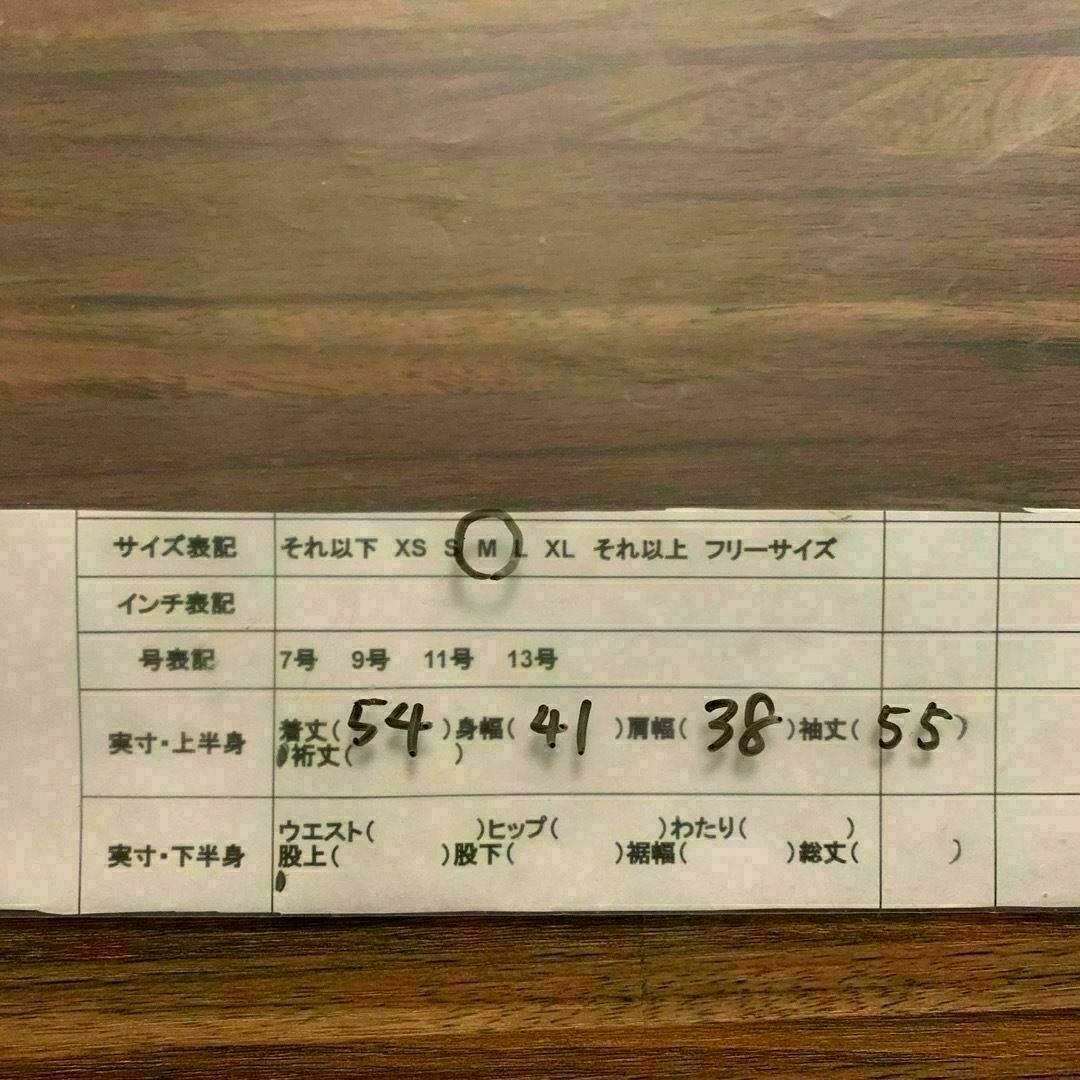 サイズ表記 それ以下 XS S M L XL それ以上 フリーサイズ
インチ表記
号表記 7号 9号 11号 13号
実寸・上半身 着丈(54)身幅(41)肩幅(38)袖丈(55)
裄丈( )
実寸・下半身 ウエスト( )ヒップ( )わたり( )
股上( )股下( )裾幅( )総丈( )